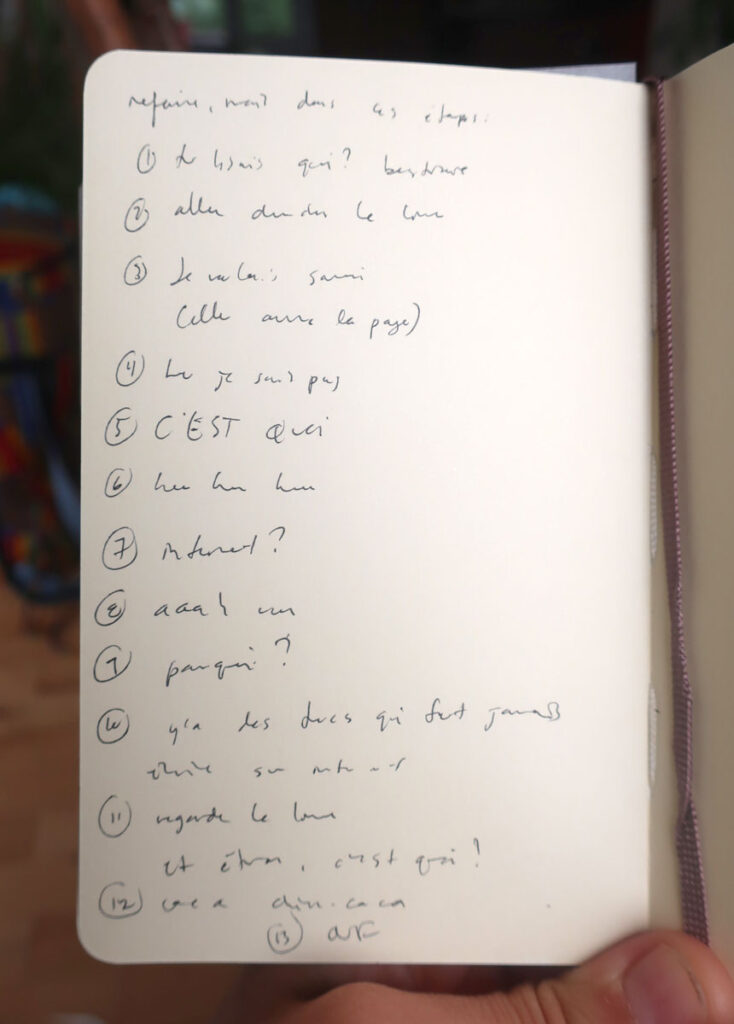 refaire, mais dans ces étapes:
① tu lisais quoi?
② aller le livre
③ Je voulais savoir
(elle ouvre la page)
④ je sais pas
⑤ C'EST QUOI
⑥ heu heu heu
⑦ internet?
⑧ aaah
⑨ pourquoi?
⑩ y'a des trucs qu'i faut jamais
écrire sur internet
⑪ regarde le livre
et étron, c'est quoi!
⑫ caca
⑬